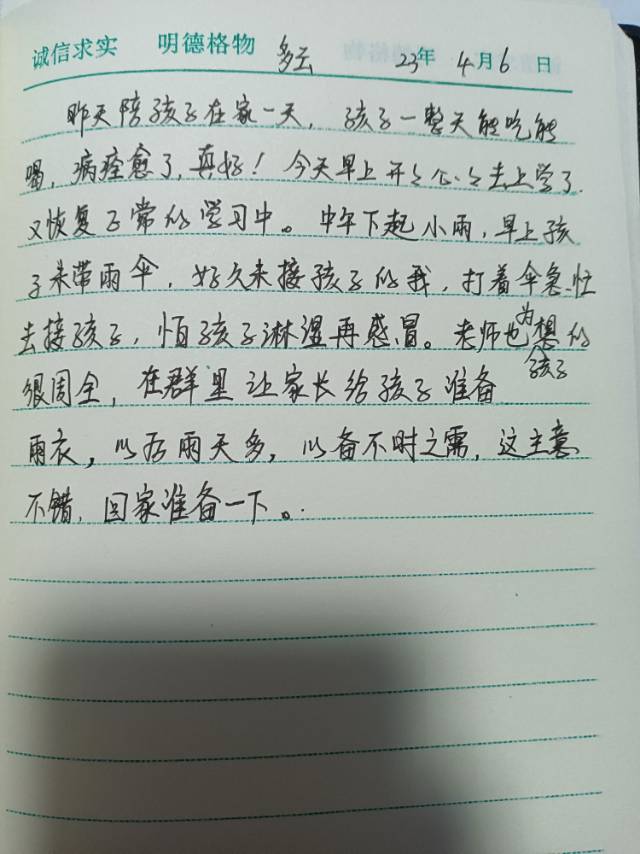 诚信求实 明德格物 多云 23年 4月6日
昨天陪孩子在家一天，孩子一整天能吃能
喝，病痊愈了，真好！今天早上开开心心去上学了，
又恢复正常的学习中。中午下起小雨，早上孩
子未带雨伞，好久未接孩子的我，打着伞急忙
去接孩子，怕孩子淋湿再感冒。老师也为孩子想的
很周全，在群里让家长给孩子准备
雨衣，以后雨天多，以备不时之需，这主意
不错，回家准备一下。